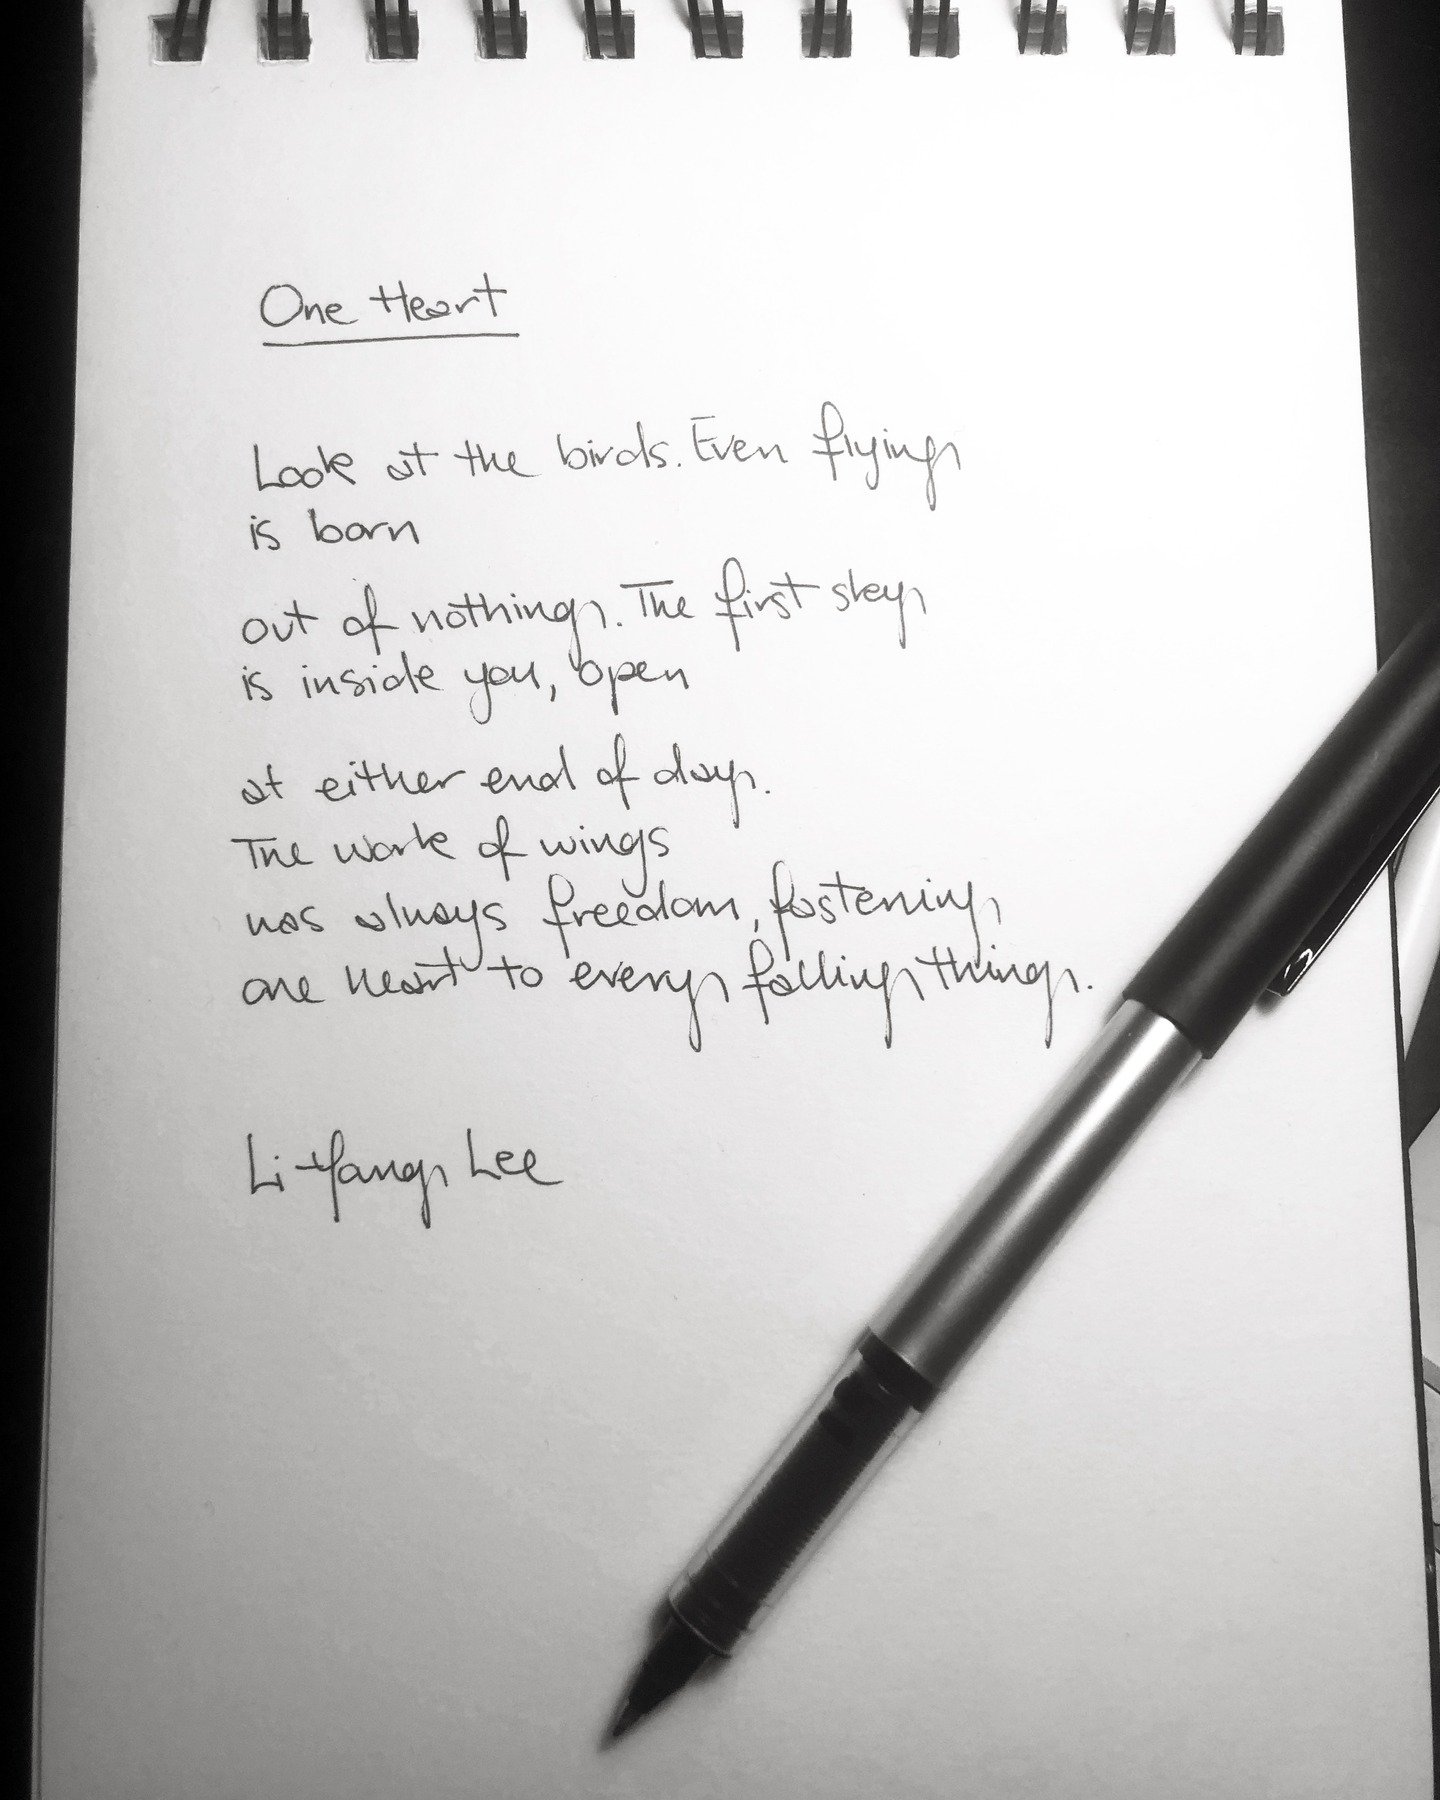 One Heart
Look at the birds. Even flying
is born
out of nothing. The first sky
is inside you, open
at either end of day.
The work of wings
was always freedom, fastening
one heart to every falling thing.
Li-Young Lee